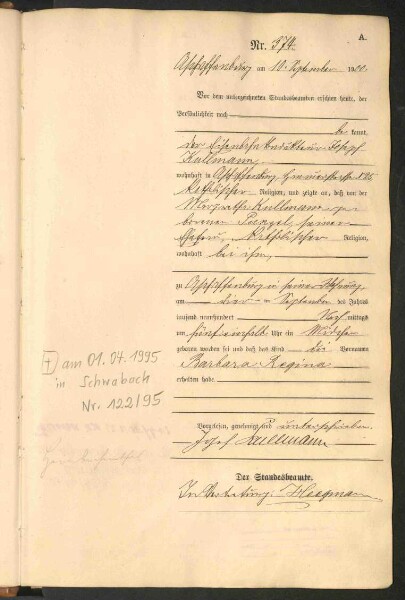 A.
Nr. 574.
Aschaffenburg am 10. September 1900.
Vor dem unterzeichneten Standesbeamten erschien heute, der
Persönlichkeit nach
be kannt,
der Joseph
Kullmann,
wohnhaft in Aschaffenburg
katholischer Religion, und zeigte an, daß von der
Kullmann, ge-
borenen seiner
Ehefrau, katholischer Religion,
wohnhaft bei ihm,
zu Aschaffenburg in seiner Wohnung
am vier ten September des Jahres
tausend neunhundert Nach mittags
um fünf einhalb Uhr ein Mädchen
geboren worden sei und daß das Kind die Vornamen
Barbara Regina
erhalten habe
Vorgelesen, genehmigt und unterschrieben.
Josef Kullmann
Der Standesbeamte.
In Vertretung:
(†) am 01.04.1995
in Schwabach
Nr. 122/95